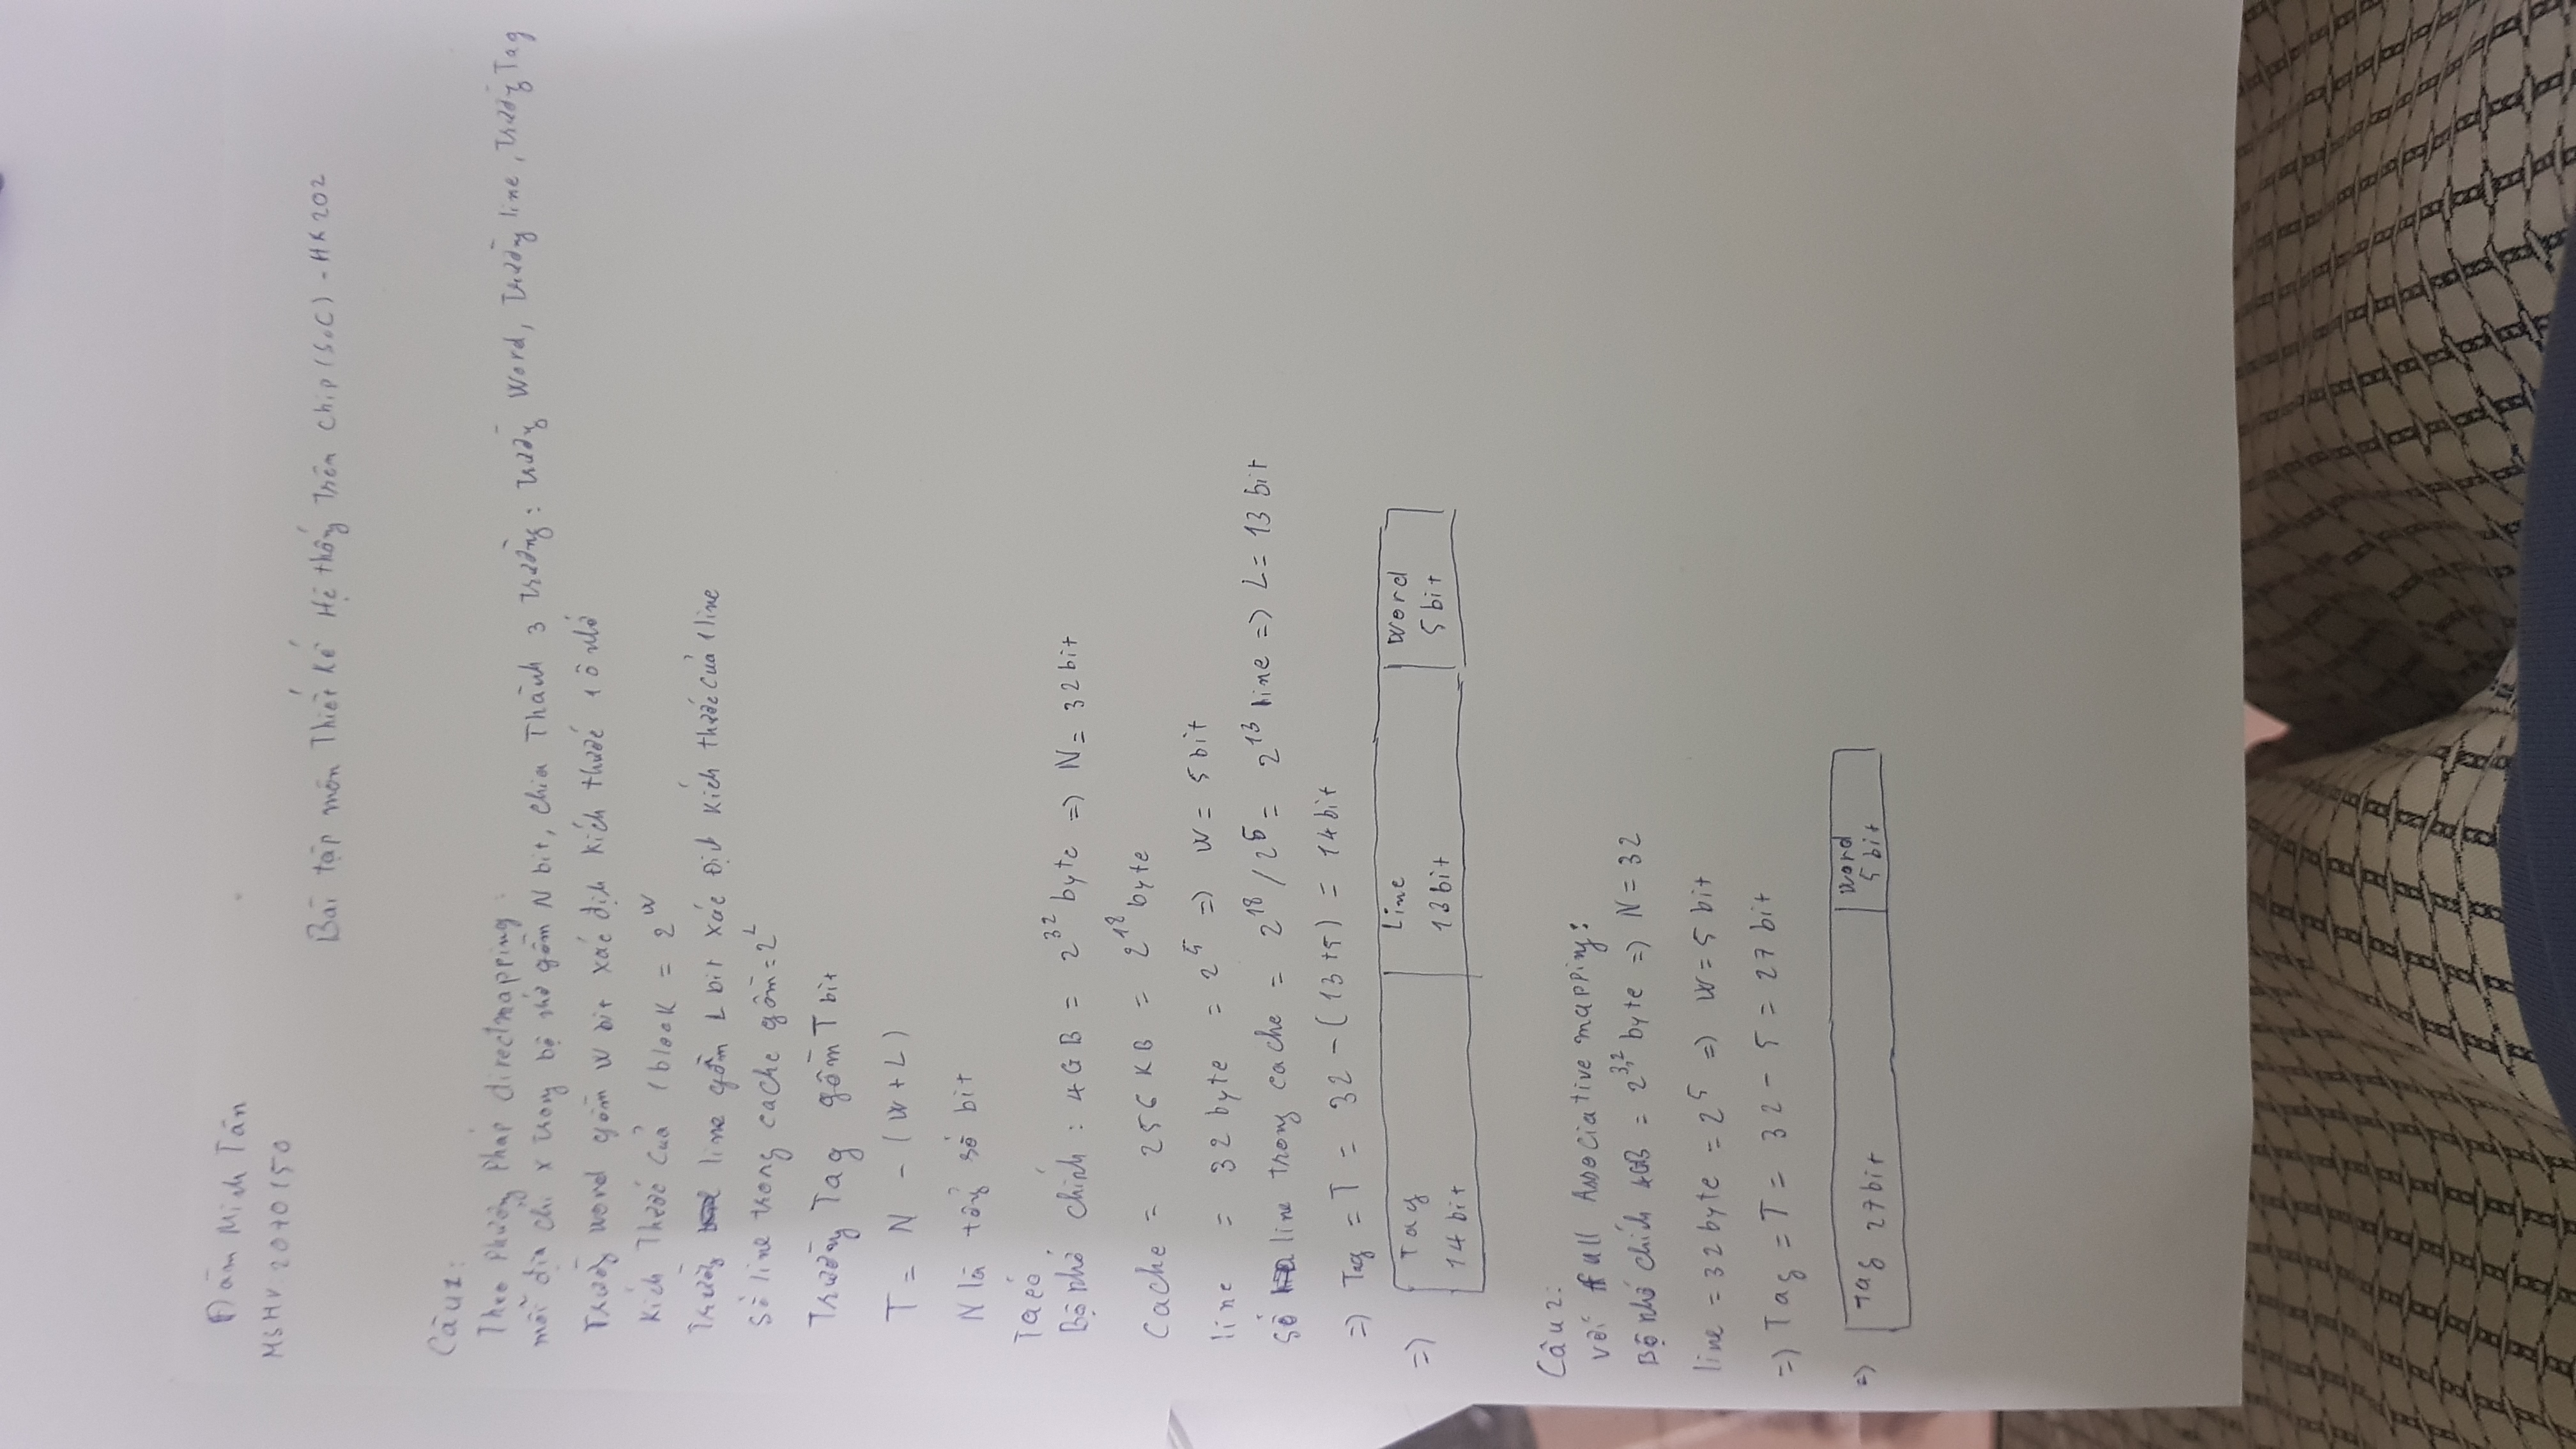 Đàm Minh Tân
MSHV: 2070150
Bài tập môn Thiết Kế Hệ thống Trên Chip (SoC) - HK202
Câu 1:
Theo Phương Pháp directmapping:
mỗi địa chỉ X trong bộ nhớ gồm N bit, chia Thành 3 trường: trường Word, Trường line, trường Tag
Trường word gồm W bit xác định kích thước 1 ô nhớ
Kích Thước của 1 block = 2^W
Trường line gồm L bit xác định kích thước của 1 line
Số line trong cache gồm = 2^L
Trường Tag gồm T bit
T = N - (W + L)
N là tổng số bit
Ta có
Bộ nhớ chính: 4GB = 2^32 byte => N = 32 bit
Cache = 256 KB = 2^18 byte
line = 32 byte = 2^5 => W = 5 bit
Số line trong cache = 2^18 / 2^5 = 2^13 line => L = 13 bit
=> Tag = T = 32 - (13 + 5) = 14 bit
=> Tag Line Word
14 bit 13 bit 5 bit
Câu 2:
với full Associative mapping:
Bộ nhớ chính 4GB = 2^32 byte => N = 32
line = 32 byte = 2^5 => W = 5 bit
=> Tag = T = 32 - 5 = 27 bit
=> Tag 27 bit Word
5 bit